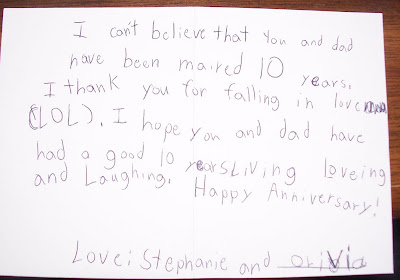 I can't believe that you and dad
have been maired 10 years.
I thank you for falling in love
(LOL). I hope you and dad have
had a good 10 yearsLiving loveing
and Laughing. Happy Anniversary!
Love: Stephanie and Orivia